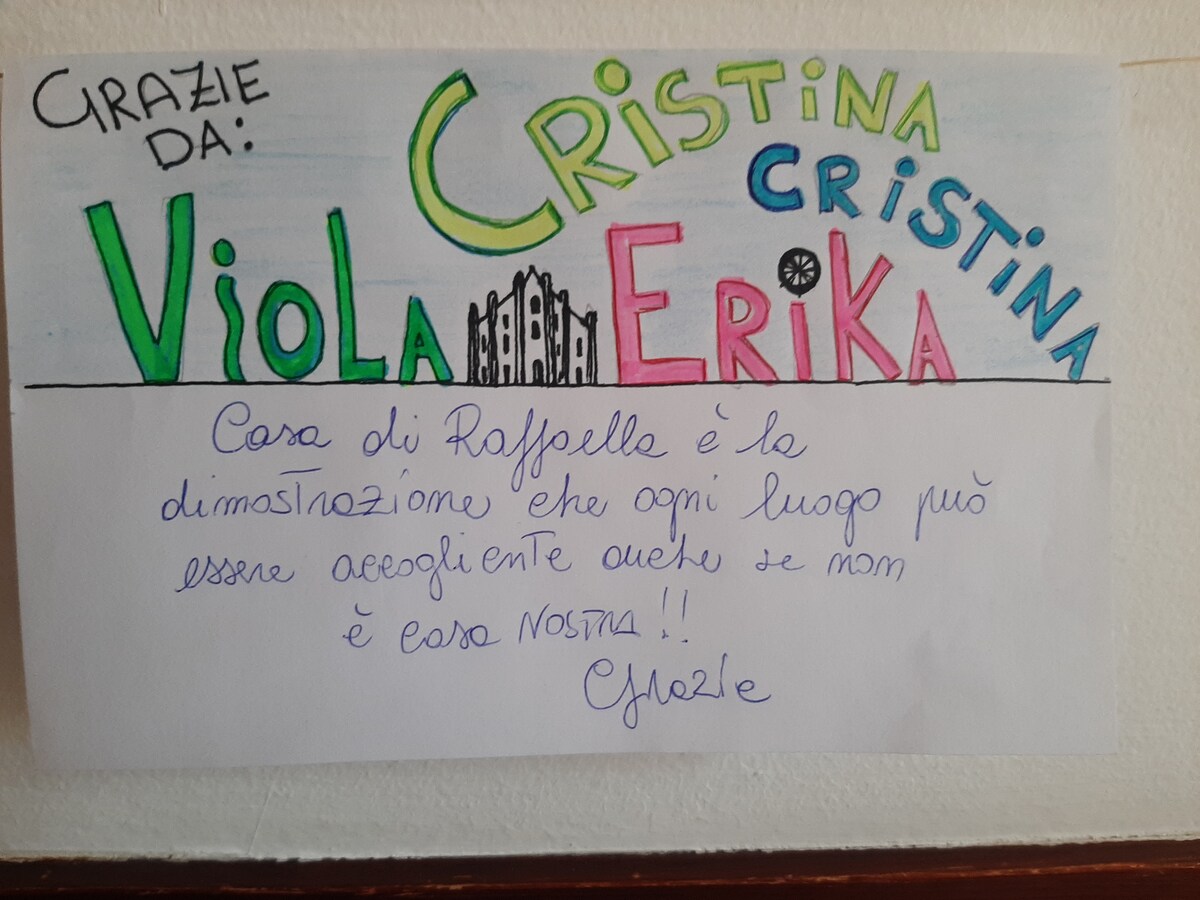 GRAZIE
DA:
CRiSTiNA
CRiSTiNA
ViOLA ERiKA
Casa di Raffaella è la
dimostrazione che ogni luogo può
essere accogliente anche se non
è casa NOSTRA!!
Grazie